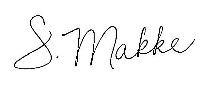 S. Makke